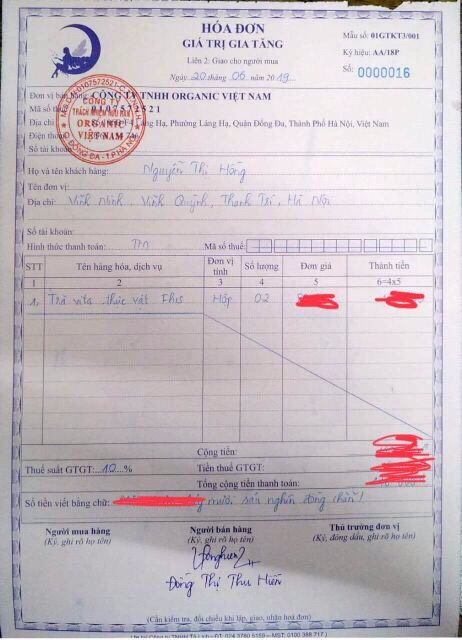 HÓA ĐƠN
GIÁ TRỊ GIA TĂNG
Liên 2: Giao cho người mua
Ngày 20 tháng 06 năm 2019
Mẫu số: 01GTKT3/001
Ký hiệu: AA/18P
Số: 0000016
Đơn vị bán hàng: CÔNG TY TNHH ORGANIC VIỆT NAM
Mã số thuế: 0107572521
Láng Hạ, Phường Láng Hạ, Quận Đống Đa, Thành Phố Hà Nội, Việt Nam
Điện thoại:
Số tài khoản
M.S.D.N:0107572521-C.T.T.N.H.H
CÔNG TY
TRÁCH NHIỆM HỮU HẠN
ORGANIC
VIỆT NAM
Q.ĐỐNG ĐA - T.P HÀ NỘI
Họ và tên khách hàng: Nguyễn Thị Hồng
Tên đơn vị:
Địa chỉ: Vĩnh Ninh, Vĩnh Quỳnh, Thanh Trì, Hà Nội
Số tài khoản:
Hình thức thanh toán: TM Mã số thuế:
STT Tên hàng hóa, dịch vụ Đơn vị tính Số lượng Đơn giá Thành tiền
1 2 3 4 5 6=4x5
1. Trà thực vật Hộp 02
Cộng tiền:
Thuế suất GTGT: 10 % Tiền thuế GTGT:
Tổng cộng tiền thanh toán:
Số tiền viết bằng chữ: mươi sáu nghìn đồng chẵn!
Người mua hàng Người bán hàng Thủ trưởng đơn vị
(Ký, ghi rõ họ tên) (Ký, ghi rõ họ tên) (Ký, đóng dấu, ghi rõ họ tên)
Đồng Thị Thu Hiền
(Cần kiểm tra, đối chiếu khi lập, giao, nhận hoá đơn)